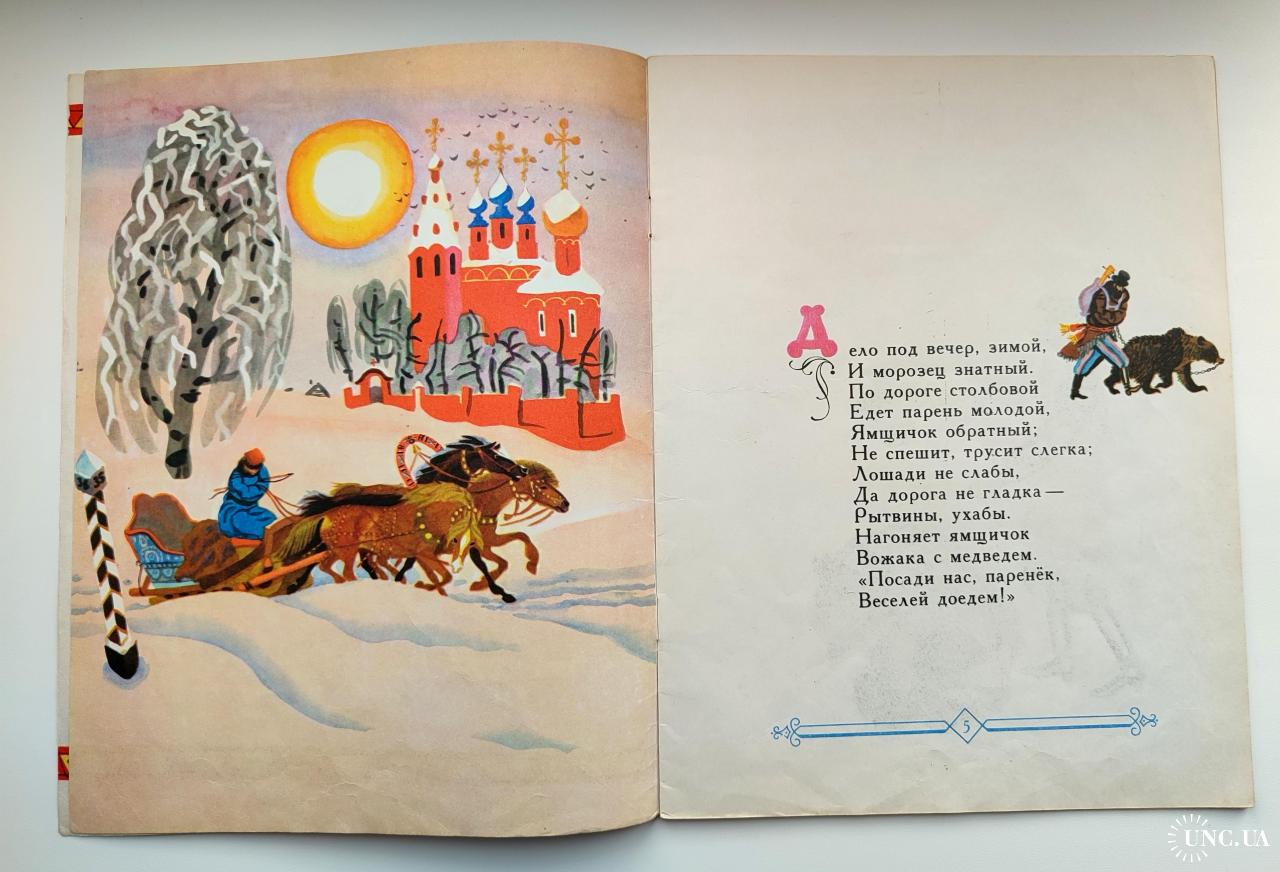 Дело под вечер, зимой,
И морозец знатный.
По дороге столбовой
Едет парень молодой,
Ямщичок обратный;
Не спешит, трусит слегка;
Лошади не слабы,
Да дорога не гладка —
Рытвины, ухабы.
Нагоняет ямщичок
Вожака с медведем.
«Посади нас, паренёк,
Веселей доедем!»
5
UNC.UA